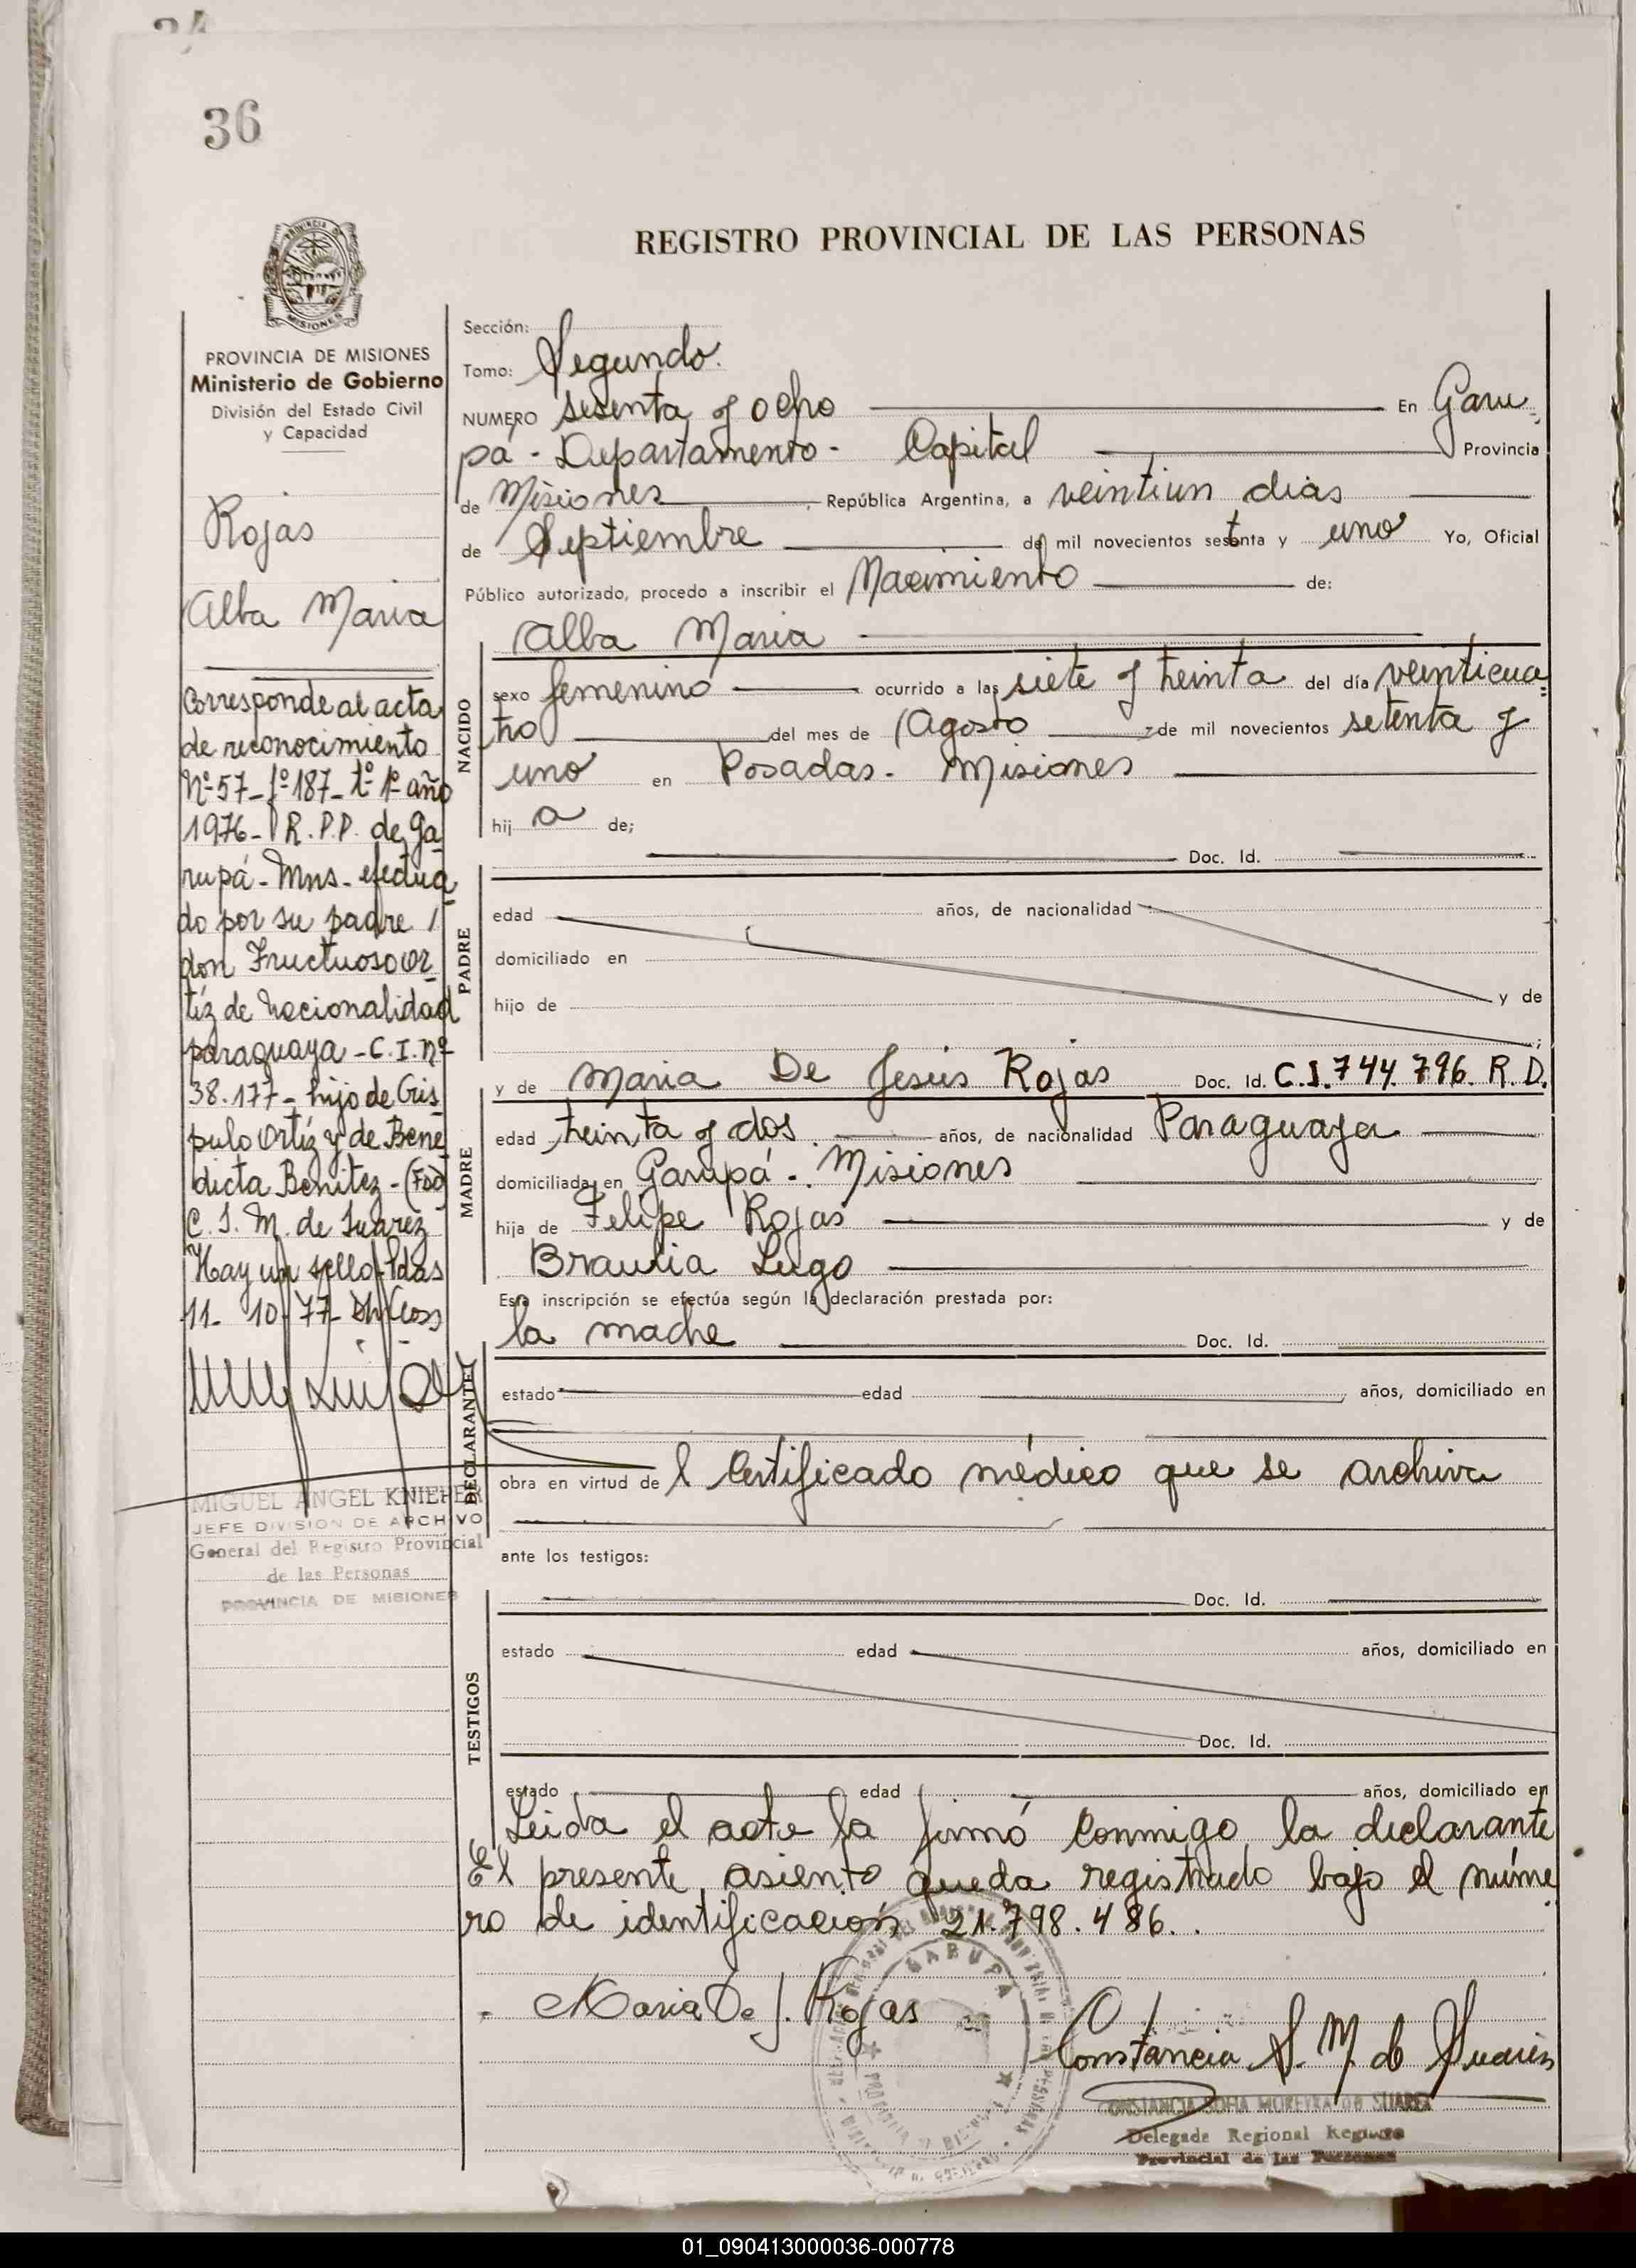 36
REGISTRO PROVINCIAL DE LAS PERSONAS
MISIONES
PROVINCIA DE MISIONES
Ministerio de Gobierno
División del Estado Civil
y Capacidad
Rojas
Alba Maria
Corresponde al acta
de reconocimiento
Nº 57 - fº 187 - tº 1º año
1976 - R.P.P. de Ga
rupá - Mns - efectua
do por su padre
don Fructuoso Or
tíz de nacionalidad
paraguaya - C.I. nº
38.177 - hijo de Cris
pulo Ortíz y de Bene
dicta Benítez - (Fdo)
C. S. M. de Suarez
Hay un sello - Pdas
11 - 10 - 77 -
MIGUEL ANGEL KNIEPER
JEFE DIVISION DE ARCHIVO
General del Registro Provincial
de las Personas
PROVINCIA DE MISIONES
Sección:
Tomo: Segundo.
NUMERO sesenta y ocho En Garu
pá - Departamento - Capital Provincia
de Misiones, República Argentina, a veintiun dias
de Septiembre de mil novecientos setenta y uno Yo, Oficial
Público autorizado, procedo a inscribir el Nacimiento de:
NACIDO
Alba Maria
sexo femenino ocurrido a las siete y treinta del día veinticua
tro del mes de Agosto de mil novecientos setenta y
uno en Posadas - Misiones
hija de;
Doc. Id.
PADRE
edad años, de nacionalidad
domiciliado en
hijo de y de
;
MADRE
y de Maria De Jesús Rojas Doc. Id. C.I. 744.796. R.D.
edad treinta y dos años, de nacionalidad Paraguaya
domiciliada en Garupá - Misiones
hija de Felipe Rojas y de
Braulia Lugo
Esta inscripción se efectúa según la declaración prestada por:
DECLARANTE
la madre Doc. Id.
estado edad años, domiciliado en
obra en virtud del Certificado médico que se archiva
ante los testigos:
TESTIGOS
Doc. Id.
estado edad años, domiciliado en
Doc. Id.
estado edad años, domiciliado en
Leida el acta la firmó conmigo la declarante
El presente asiento queda registrado bajo el núme
ro de identificación 21.798.486.
GARUPA
Maria De J. Rojas
Constancia S. M. de Suarez
CONSTANCIA SOFIA MOREYRA DE SUAREZ
Delegada Regional Registro
Provincial de las Personas
01_090413000036-000778